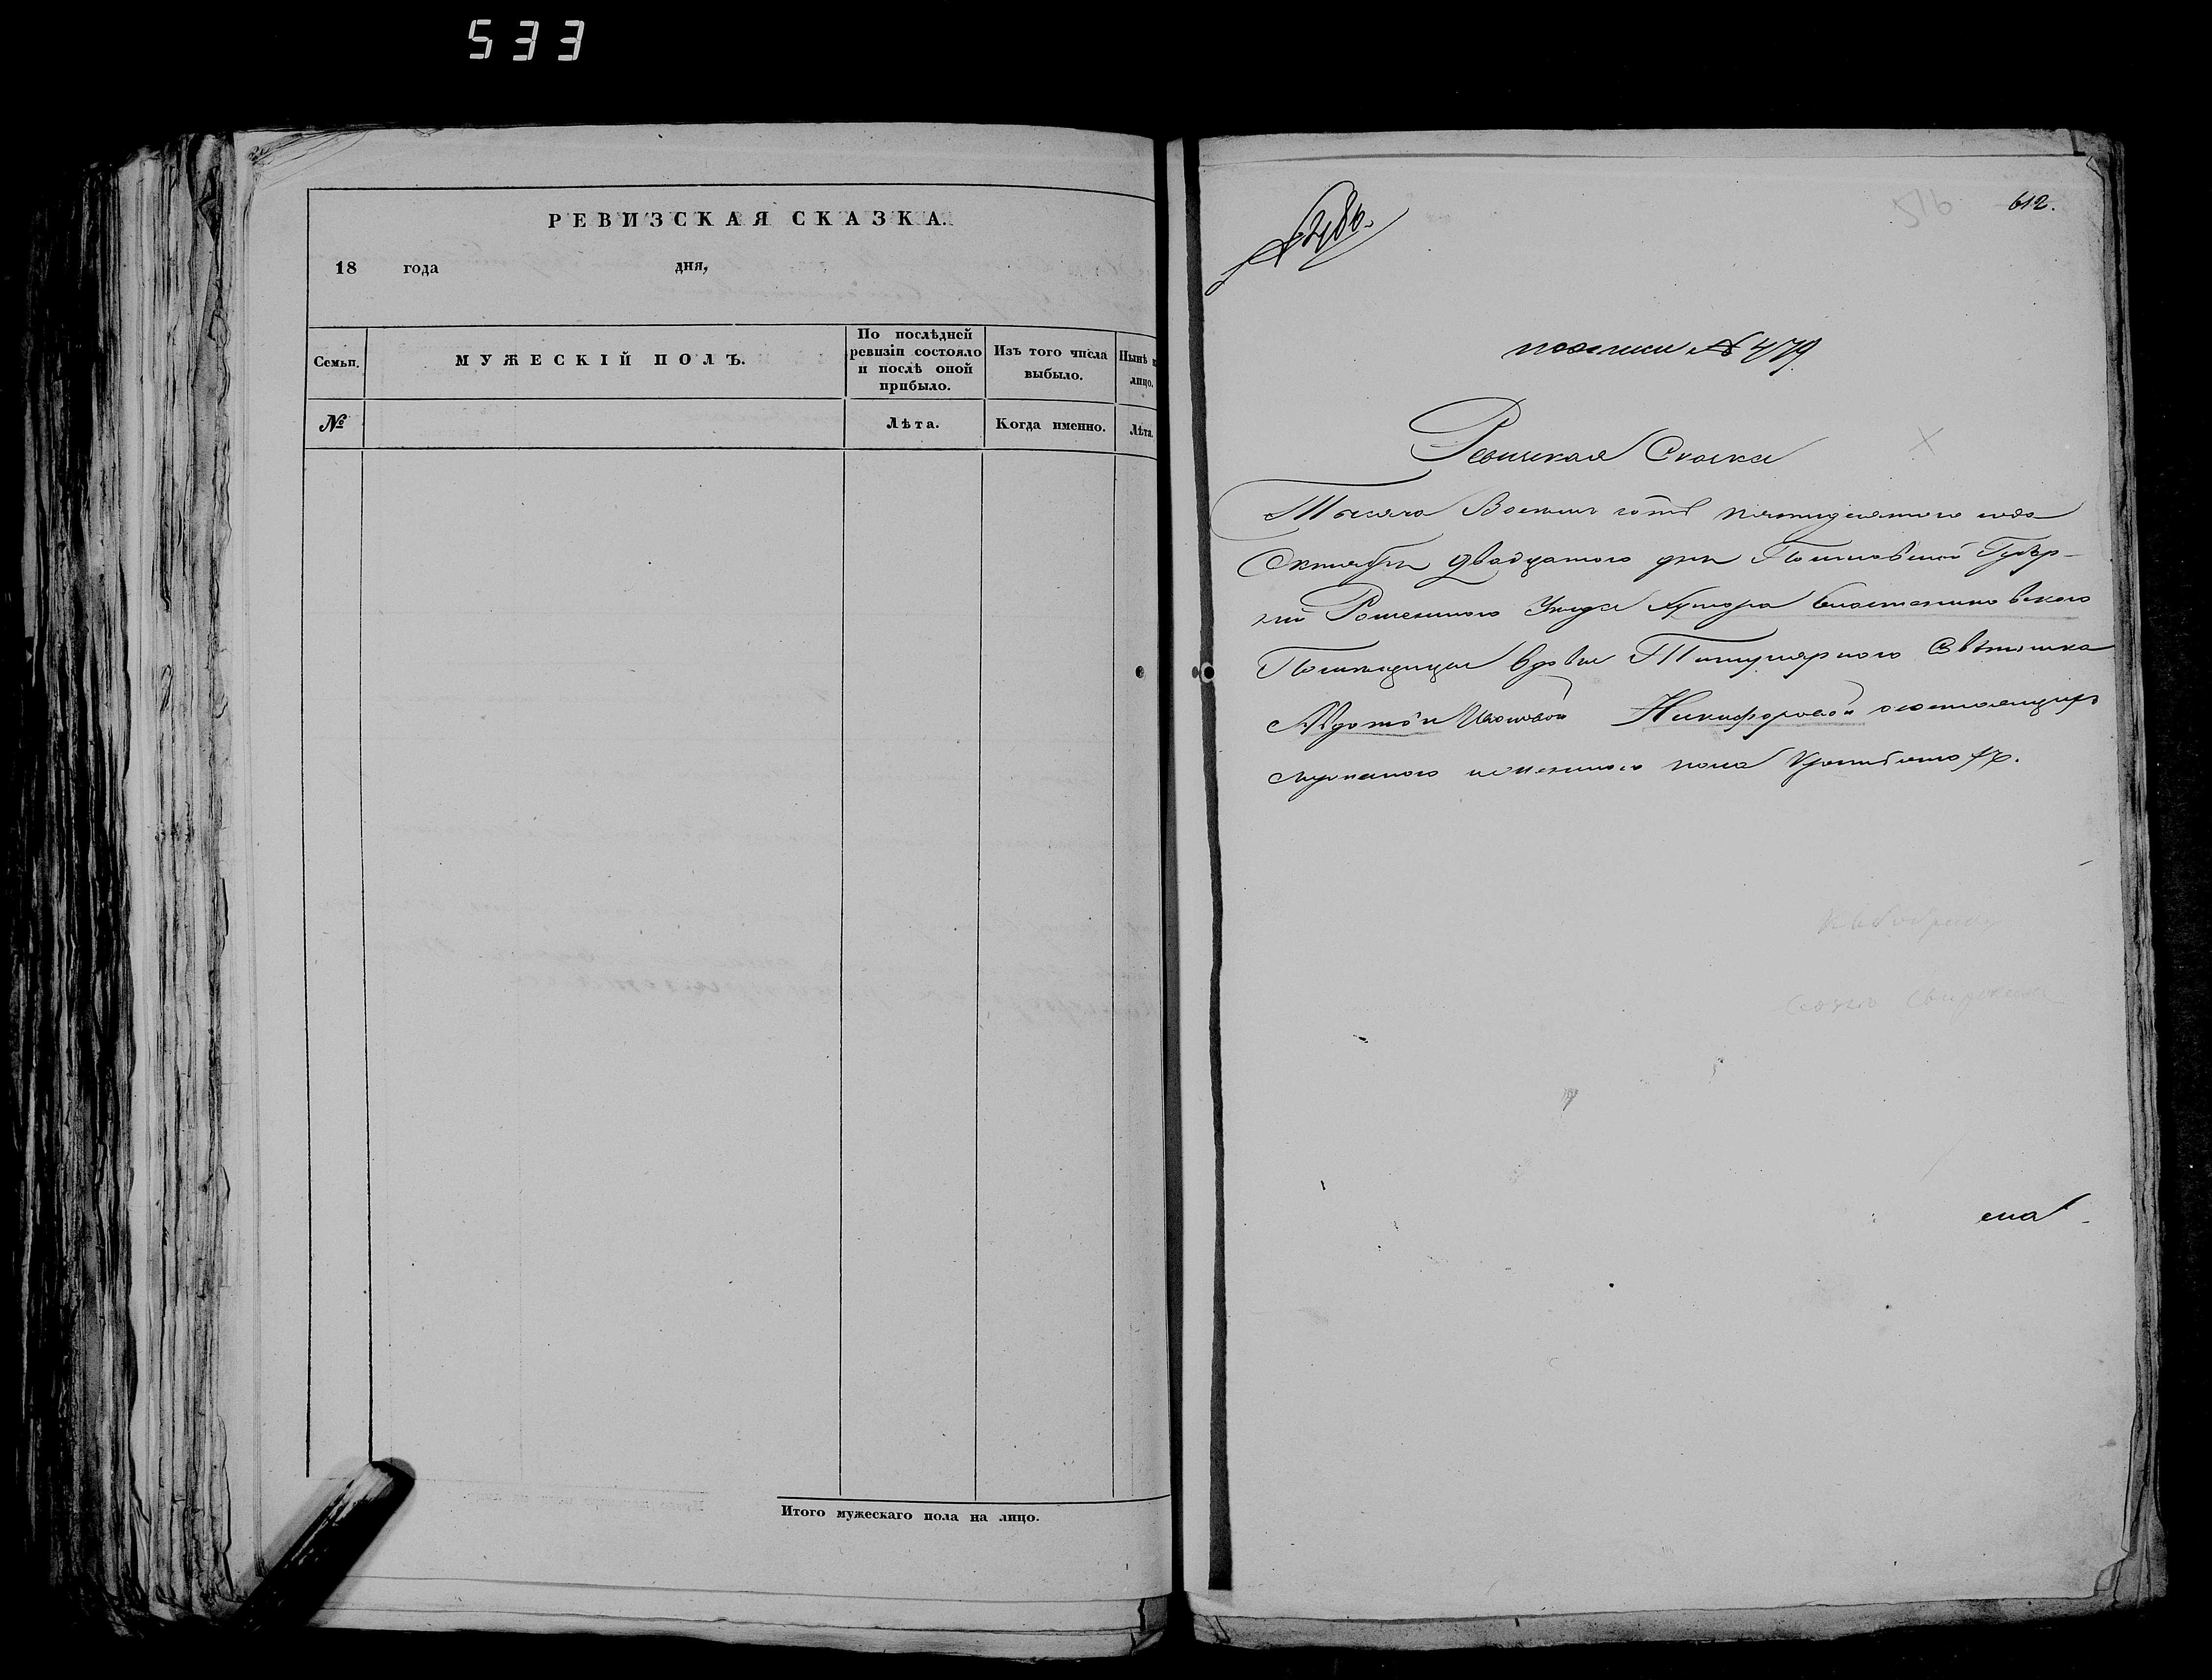 533
РЕВИЗСКАЯ СКАЗКА.
18 года дня,
Семьи.
МУЖЕСКІЙ ПОЛЪ.
По послѣдней ревизіи состояло и послѣ оной прибыло.
Изъ того числа выбыло.
Нынѣ
лицо.
№
Лѣта.
Когда именно.
Лѣта.
Итого мужескаго пола на лицо.
516
612.
№ 479
Ревизкая Сказка
Тысяча Восемь сотъ пятидесятого года
Октября двадцатого дня Полтавской Губер-
ніи Роменского Уезда хутора
Помещицы вдовы Титулярного Советника
Авдотьи Никифоровой состоящихъ
мужеского и женского пола